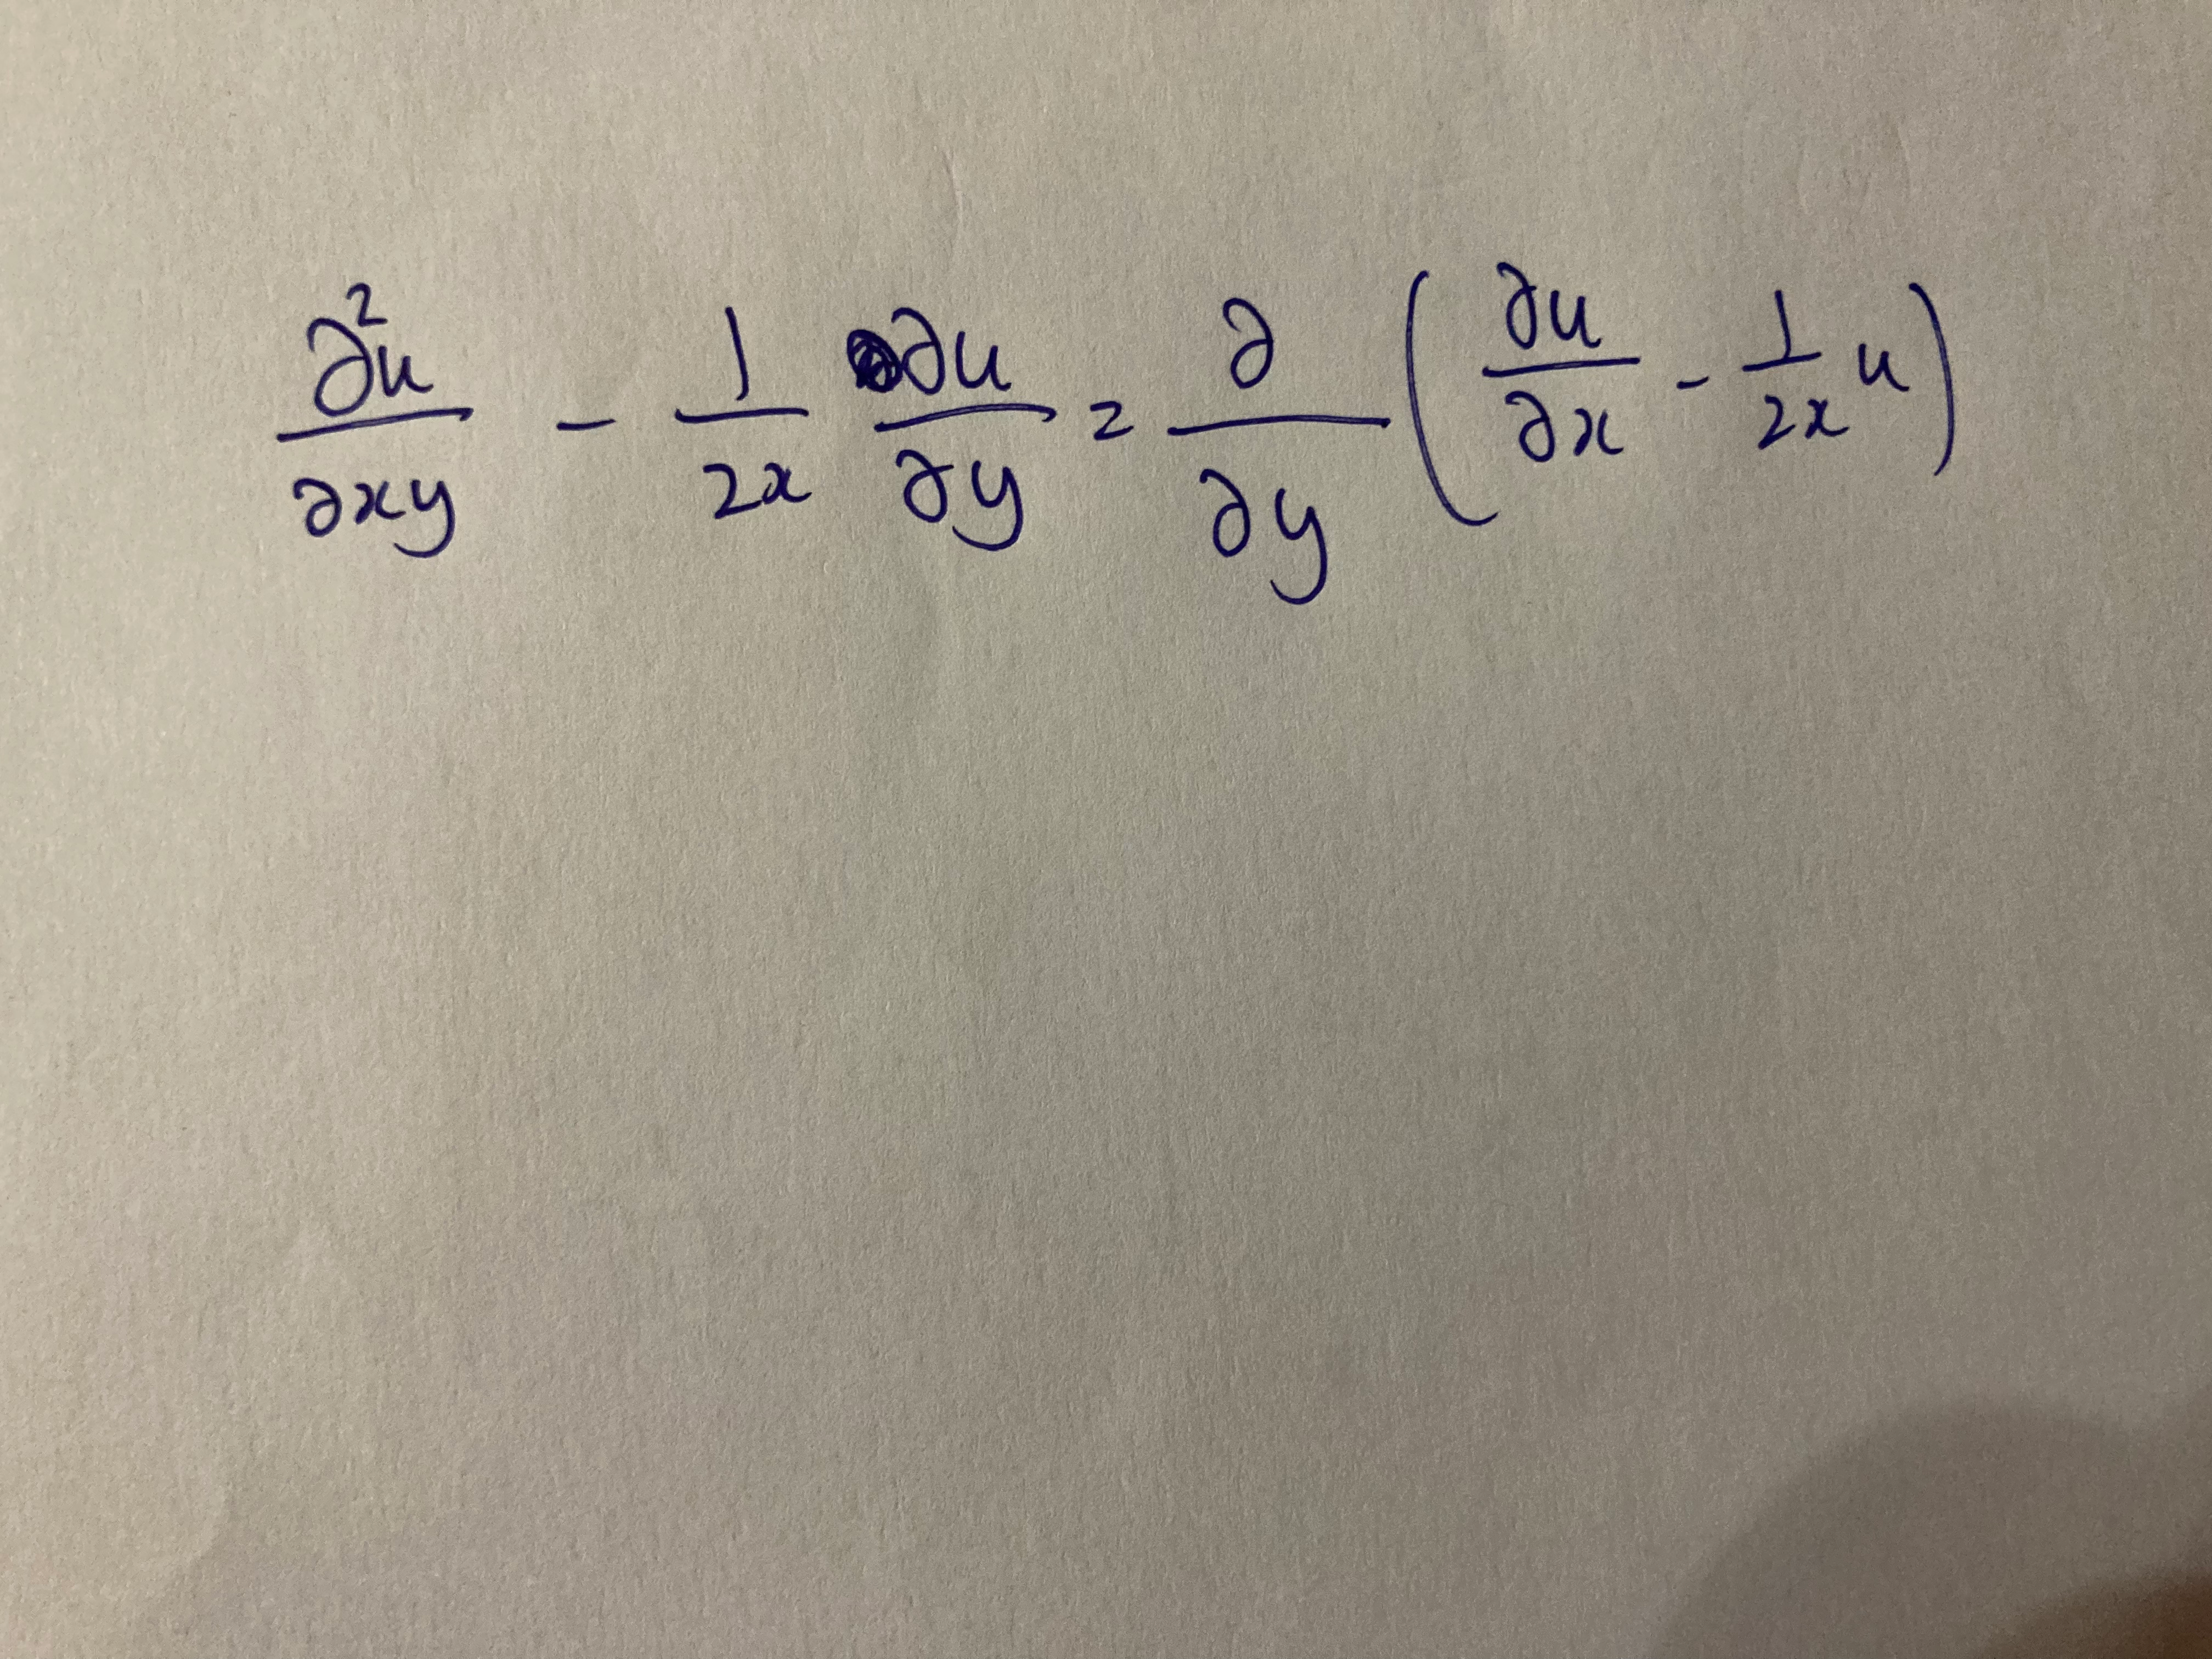 ∂²u/∂xy - 1/2x ∂u/∂y = ∂/∂y (∂u/∂x - 1/2x u)